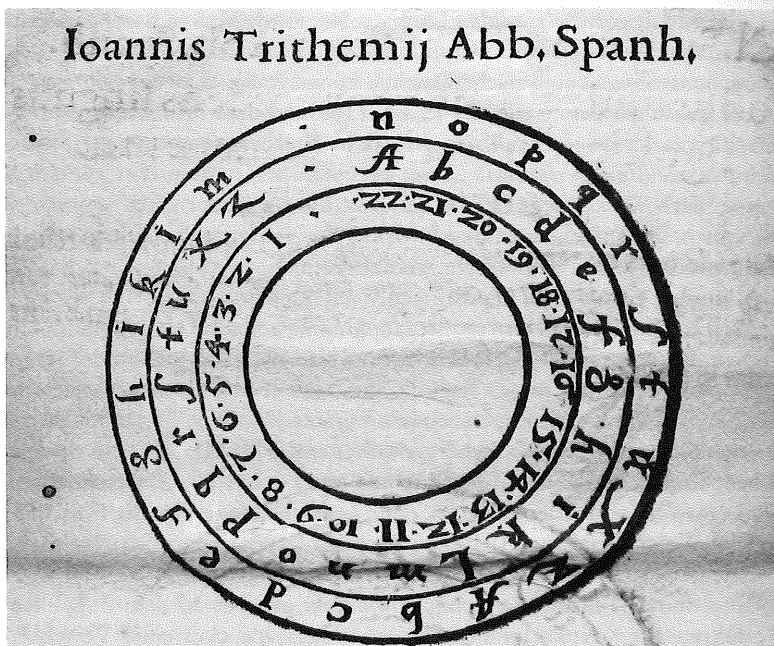 Ioannis Trithemij Abb. Spanh.
n o p q r ſ t u x z A b c d e f g h i k l m .
A b c d e f g h i k L m n o p q r ſ t u x z .
22. 21. 20. 19. 18. 17. 16. 15. 14. 13. 12. 11. 10. 9. 8. 7. 6. 5. 4. 3. 2. 1 .